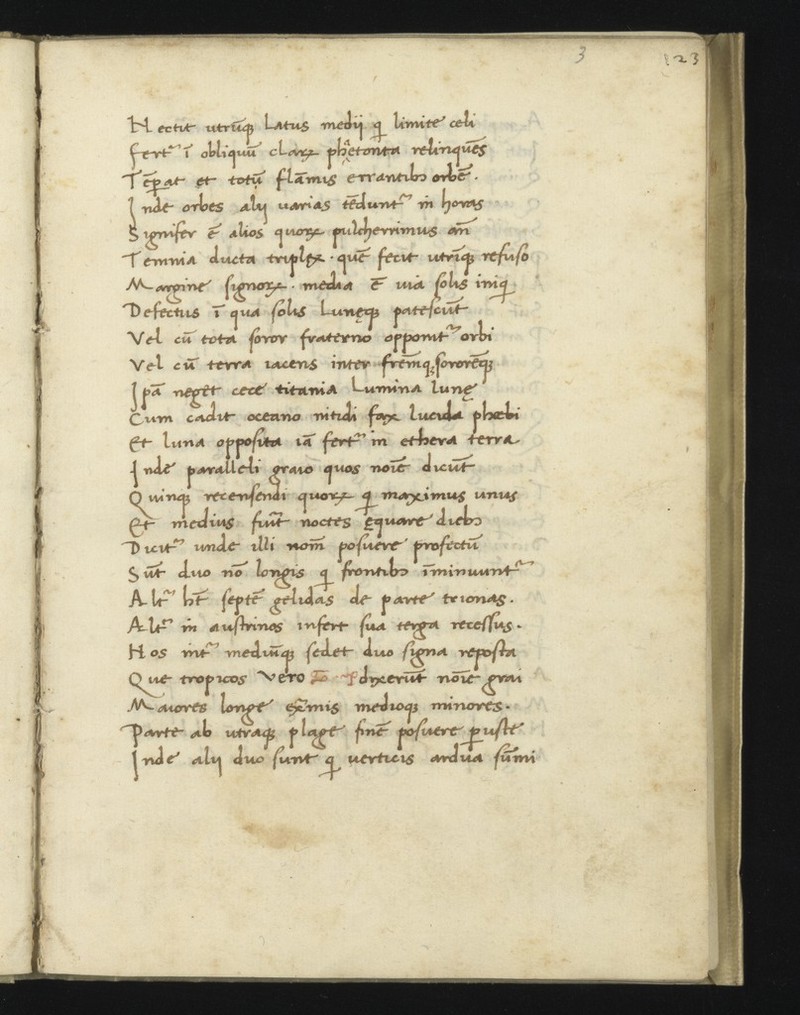 3 123
Nectit utrūq; Latus medii q̨ limite celi
Fert᷑ ī obliquū claꝝ phętonta relinquēs
Tēꝑat et totū flāmis errantibꝫ orbē.
Inde orbes alij uarias tēdunt᷑ in horas
Signifer ē alios quoꝝ pulcherrimus añ
Temnia ducta triplex · quē fecit utrīq; refuso
Margine signoꝝ · media ē uia solis iniq̨
Defectus ī qua solis Lunęq; patescūt
Vel cū tota soror fraterno opponit᷑ orbi
Vel cū terra iacens inter frēmq; sororēq;
Ipā negēt cece titania Lumina lunę
Cum cadit oceano nitidi fax lucida phœbi
Et luna opposita iā fert᷑ in ethera terra
Inde paralleli graio quos noīe dicūt
Quinq; recensendi quoꝝ q̨ maximus unus
Et medius fuīt noctes ęquare diebꝫ
Dicit᷑ unde illi nom̄ posuere profectū
Sūt duo nō longis q̨ frontibꝫ īminuunt᷑
Alt᷑ hēt septē gelidas de parte trionas.
Alt᷑ in austrinos infert sua terga recessus.
Hos int᷑ mediūq; sedet duo signa reposta
Que tropicos vero dixerūt noīe grai
Maiores longe ex̄mis medioq; minores.
Parte ab utraq; plage finē posuere ꝑuste
Inde alij duo sunt q̨ uerticis ardua sūmi